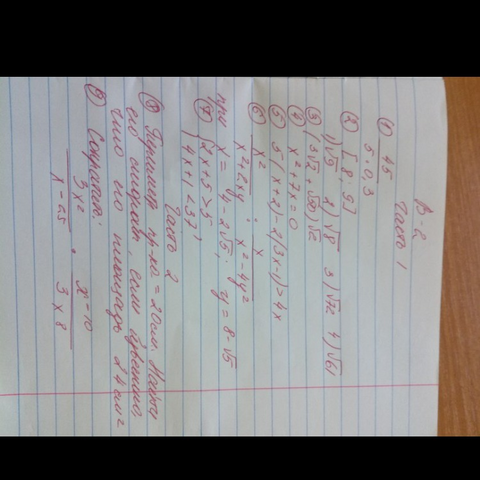 В-2
Часть 1
① 45
5·0,3
② [8; 9]
1) √9 2) √8 3) √72 4) √61
③ (3√2 + √50)√2
④ x² + 7x = 0
⑤ 5(x+2-2(3x-1)=4x
⑥ x²
x²+2xy : x
x²-4y²
при x = 4-2√5; y = 8-√5
⑦ {2x+5>5
{4x+1<37,
Часть 2
⑧ Периметр пр-ка = 20см Найти
его стороны, если известно,
что его площадь 24 см²
⑨ Сократить:
3x²
x-25 · x-10
3x8